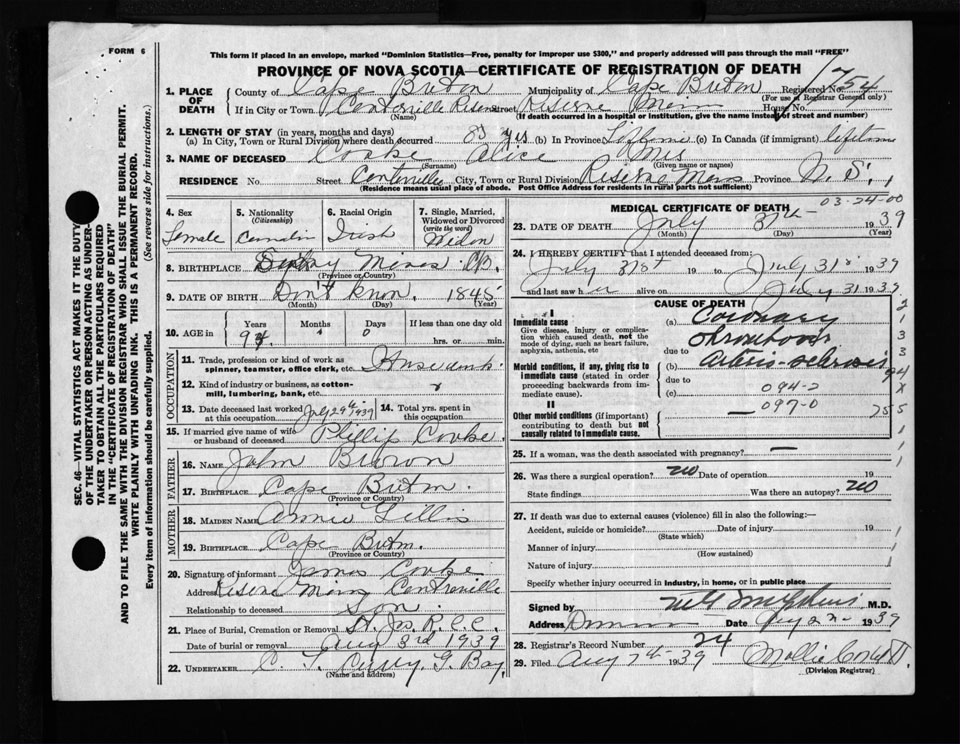 FORM 6
This form if placed in an envelope, marked "Dominion Statistics—Free, penalty for improper use $300," and properly addressed will pass through the mail "FREE"
PROVINCE OF NOVA SCOTIA—CERTIFICATE OF REGISTRATION OF DEATH
1. PLACE OF DEATH County of Cape Breton Municipality of Cape Breton Registered No. 1754
(For use of Registrar General only)
If in City or Town Centerville Reserve Street Reserve Mines House No.
(Name) (If death occurred in a hospital or institution, give the name instead of street and number)
2. LENGTH OF STAY (in years, months and days)
(a) In City, Town or Rural Division where death occurred 85 yrs (b) In Province Lifetime (c) In Canada (if immigrant) lifetime
3. NAME OF DECEASED Cooke Alice Mrs
(Surname) (Given name or names)
RESIDENCE No. Street Centerville City, Town or Rural Division Reserve Mines Province N. S.
(Residence means usual place of abode. Post Office Address for residents in rural parts not sufficient)
SEC. 46—VITAL STATISTICS ACT MAKES IT THE DUTY
OF THE UNDERTAKER OR PERSON ACTING AS UNDER-
TAKER TO OBTAIN ALL THE PARTICULARS REQUIRED
IN THE "CERTIFICATE OF REGISTRATION OF DEATH"
AND TO FILE THE SAME WITH THE DIVISION REGISTRAR WHO SHALL ISSUE THE BURIAL PERMIT.
WRITE PLAINLY WITH UNFADING INK. THIS IS A PERMANENT RECORD.
Every item of information should be carefully supplied. (See reverse side for instructions.)
4. Sex Female
5. Nationality (Citizenship) Canadin
6. Racial Origin Irish
7. Single, Married, Widowed or Divorced (write the word) Widow
8. BIRTHPLACE Sydney Mines C.B.
(Province or Country)
9. DATE OF BIRTH Don't know 1845
(Month) (Day) (Year)
10. AGE in Years Months Days If less than one day old
0 hrs. or min.
OCCUPATION
11. Trade, profession or kind of work as spinner, teamster, office clerk, etc.
12. Kind of industry or business, as cotton-mill, lumbering, bank, etc.
13. Date deceased last worked at this occupation July 29th 1939
14. Total yrs. spent in this occupation
15. If married give name of wife or husband of deceased Phillip Cooke
FATHER
16. NAME John
17. BIRTHPLACE Cape Breton
(Province or Country)
MOTHER
18. MAIDEN NAME Annie Gillis
19. BIRTHPLACE Cape Breton.
(Province or Country)
20. Signature of informant James Cooke
Address Reserve Mines Centreville
Relationship to deceased Son.
21. Place of Burial, Cremation or Removal St. Jos. R.C.C.
Date of burial or removal Aug 3rd 1939
22. UNDERTAKER C. T. Curry, G. Bay
(Name and address)
MEDICAL CERTIFICATE OF DEATH
03-24-00
23. DATE OF DEATH July 31th 1939
(Month) (Day) (Year)
24. I HEREBY CERTIFY that I attended deceased from:
July 31st 19 to July 31st 1939
and last saw her alive on July 31 1939
CAUSE OF DEATH
I
Immediate cause (a) Coronary
Give disease, injury or complication which caused death, not the mode of dying, such as heart failure, asphyxia, asthenia, etc
Thrombosis
due to
Morbid conditions, if any, giving rise to immediate cause (stated in order proceeding backwards from immediate cause). (b) Arterio-sclerosis
due to 094-2
(c)
II
097-0
Other morbid conditions (if important) contributing to death but not causally related to immediate cause.
25. If a woman, was the death associated with pregnancy?
26. Was there a surgical operation? no Date of operation 19
State findings Was there an autopsy? no
27. If death was due to external causes (violence) fill in also the following:—
Accident, suicide or homicide? Date of injury 19
(State which)
Manner of injury
(How sustained)
Nature of injury
Specify whether injury occurred in industry, in home, or in public place
Signed by M.D.
Address Date 1939
28. Registrar's Record Number 24
29. Filed Aug 7th 1939 Mollie
(Division Registrar)